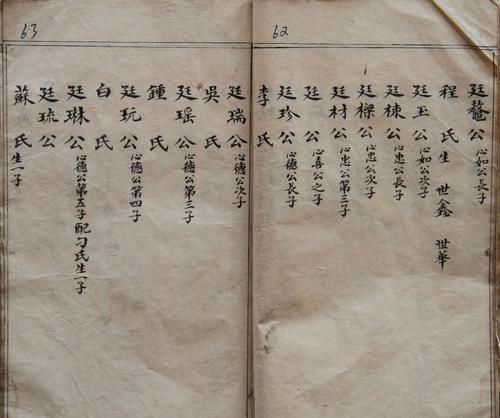 62
廷鰲公 心如公長子
程氏 生 世鑫 世華
廷玉公 心如公次子
廷棟公 心忠公長子
廷樑公 心忠公次子
廷材公 心忠公第三子
廷 公 心喜公之子
廷珍公 心德公長子
李氏
63
廷瑞公 心德公次子
吳氏
廷瑤公 心德公第三子
鍾氏
廷玩公 心德公第四子
白氏
廷琳公 心德公第五子配氏生一子
廷琉公
蘇氏 生一子